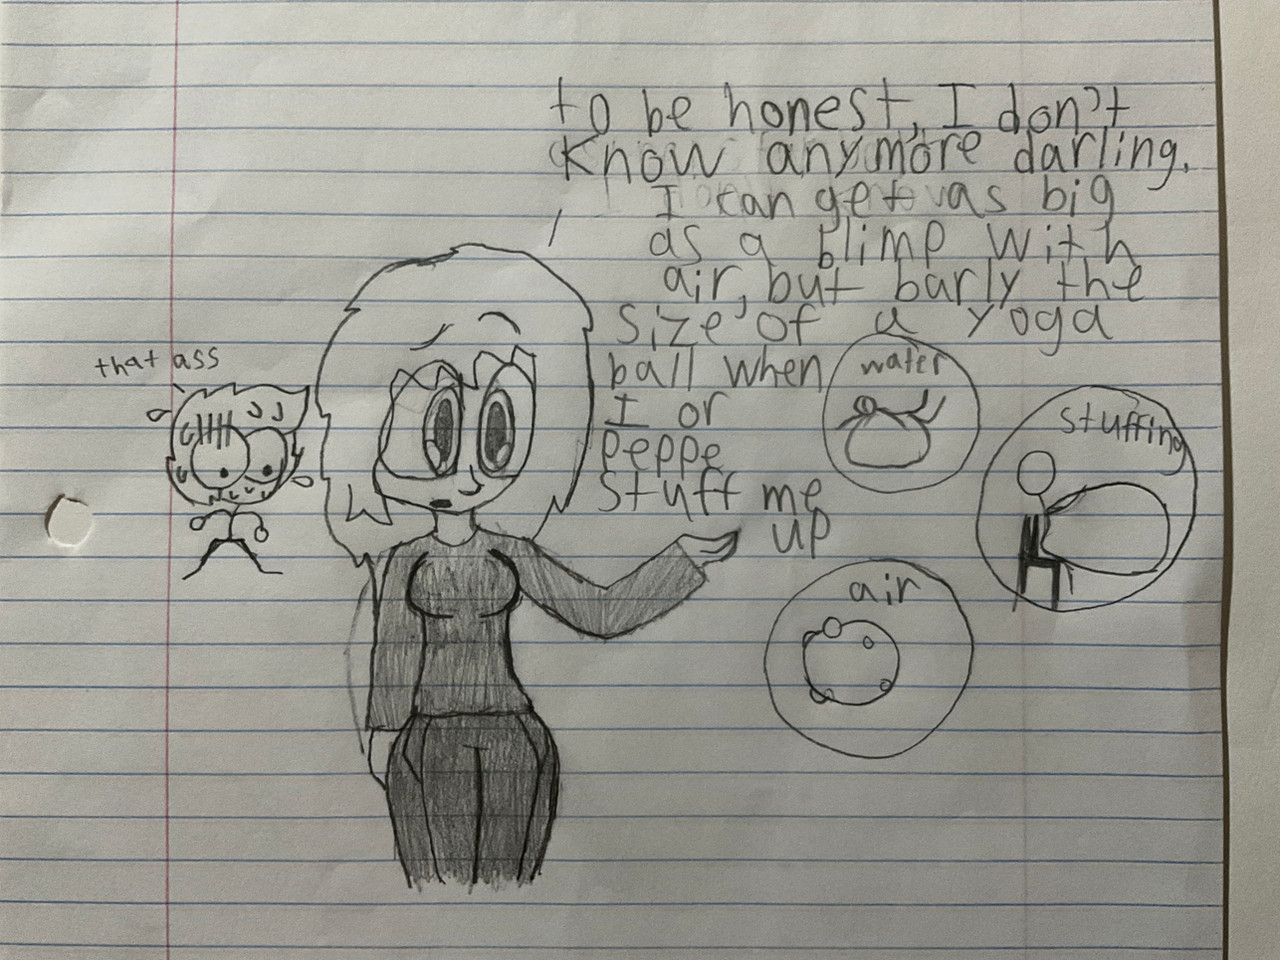 to be honest, I don't
know anymore darling.
I can get as big
as a blimp with
air, but barly the
size of a yoga
ball when
I or
peppe
stuff me
up
that ass
water
stuffing
air